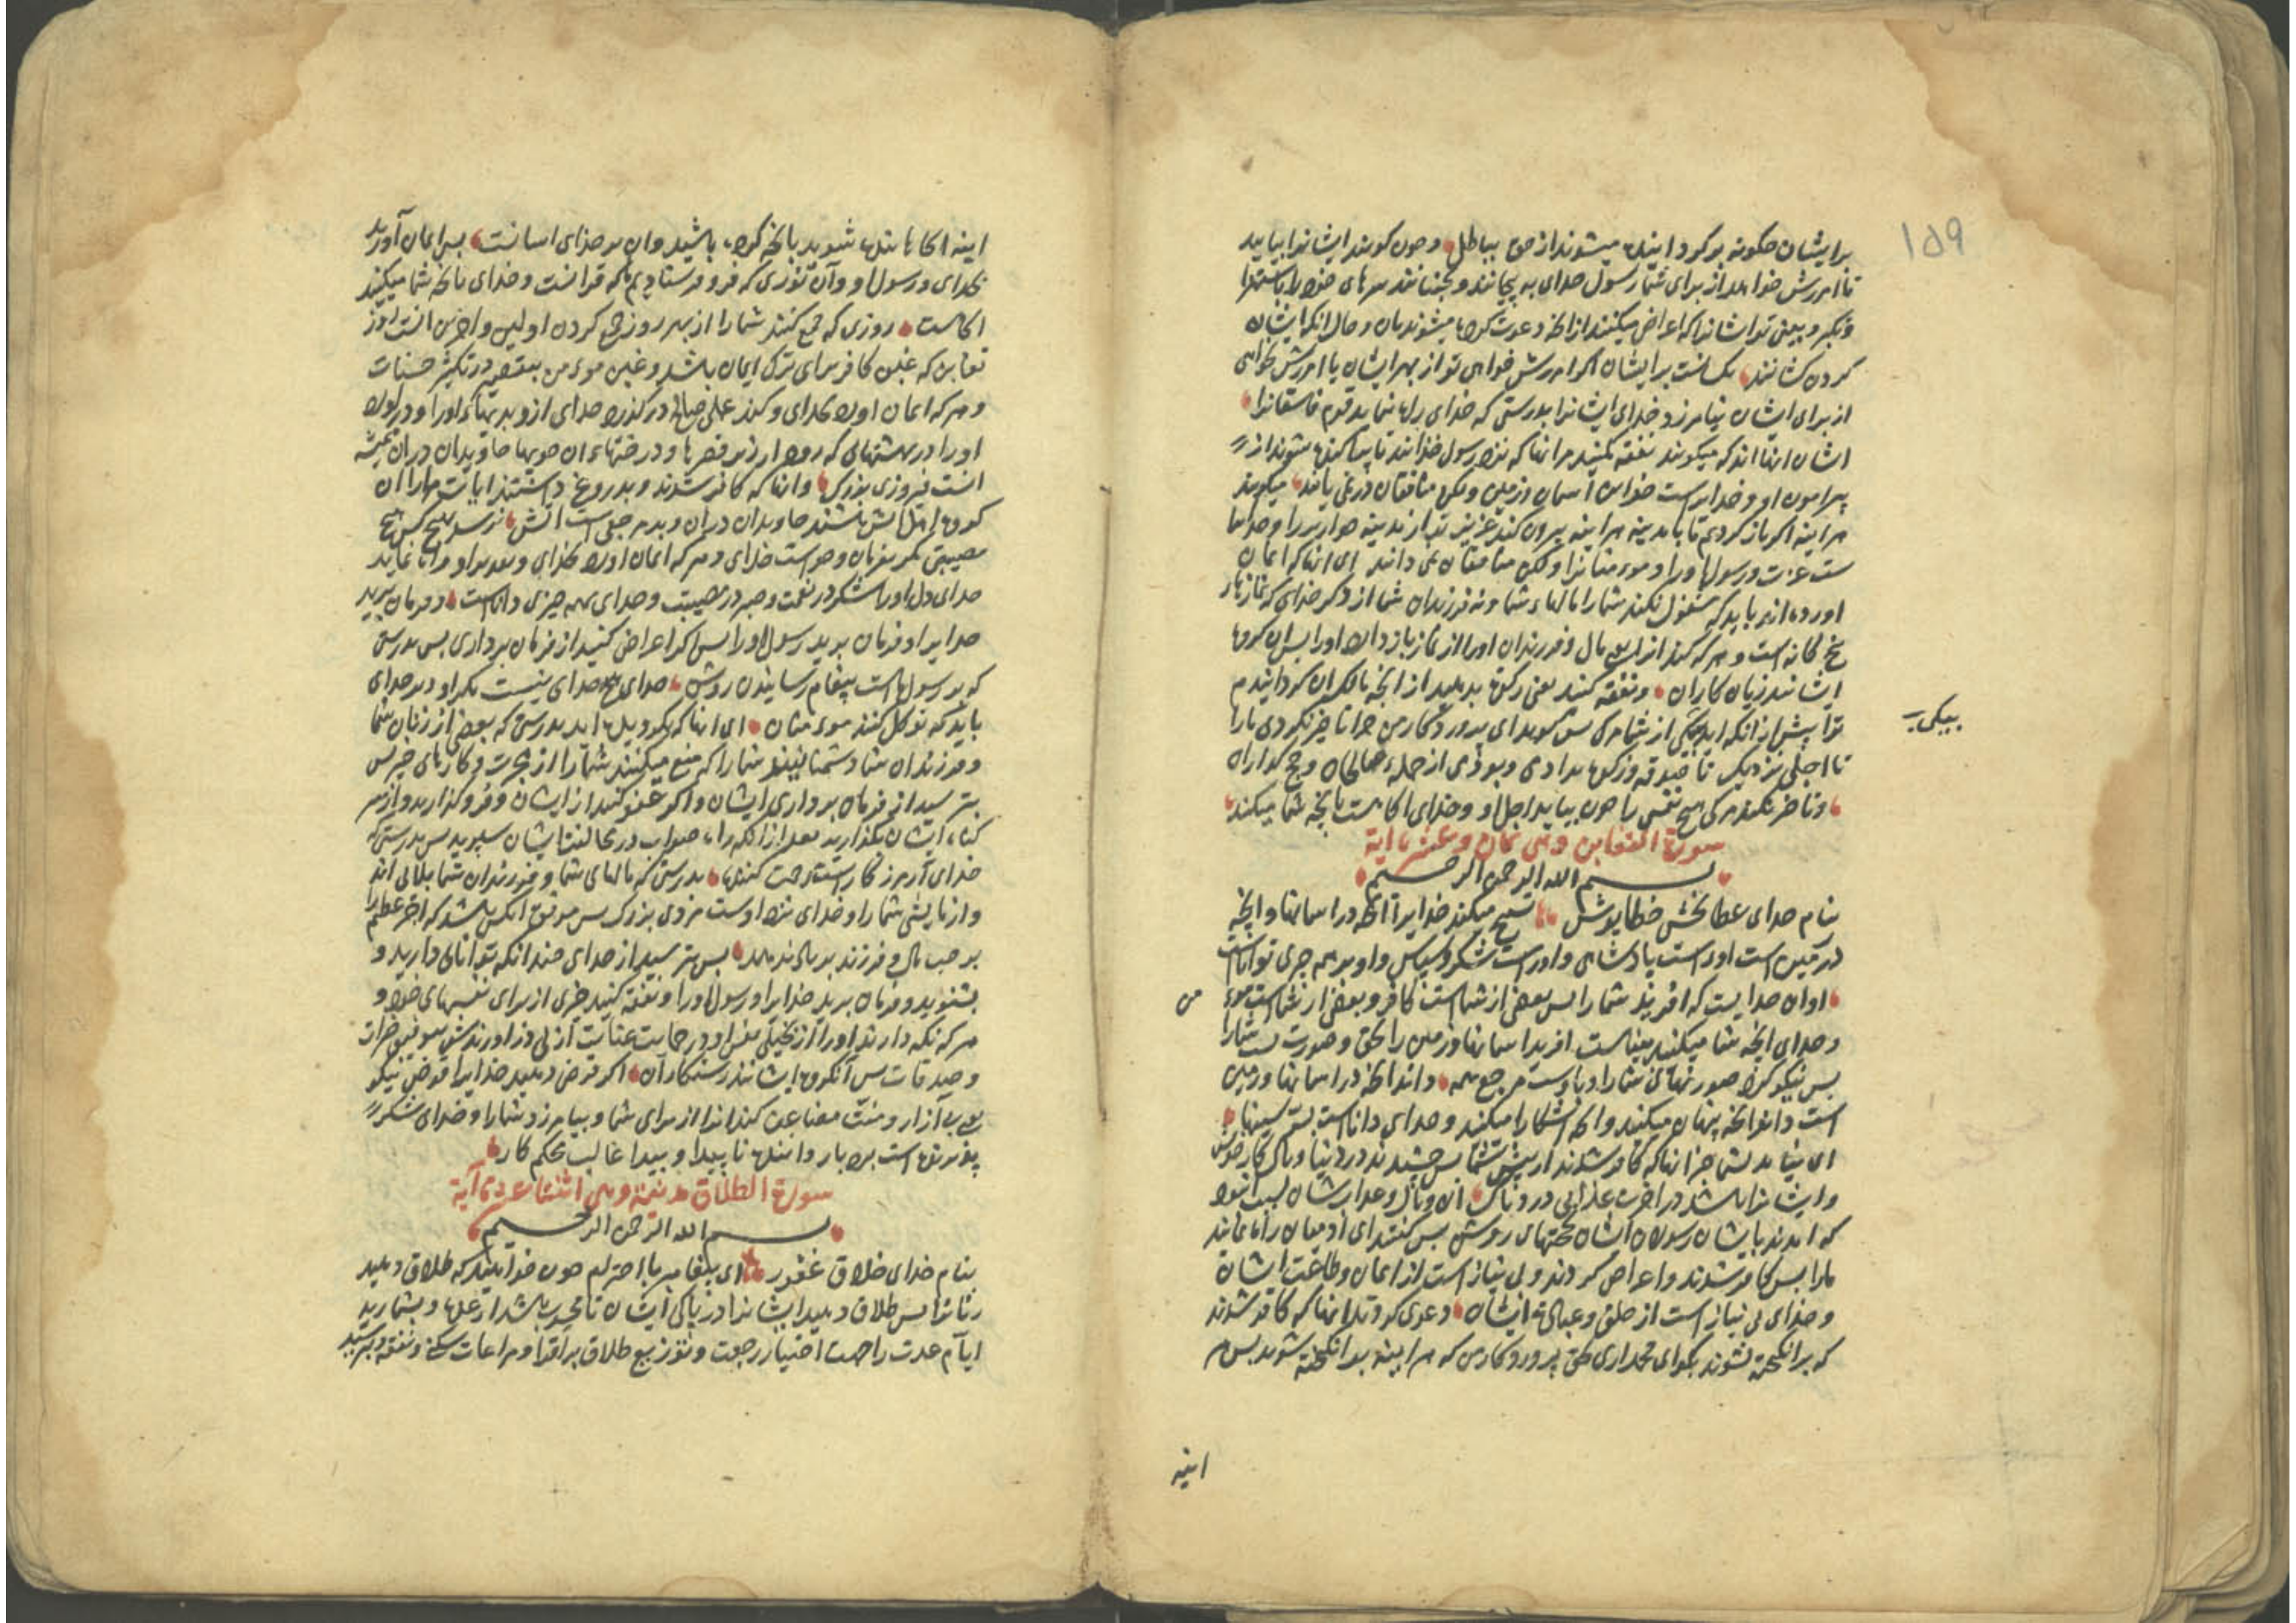 ۱۵۹
برایشان چگونه برگردانیده میشوند از حق بباطل و چون گویند ایشانرا بیایید
تا امرزش خواهد از برای شما رسول خدای به پیچانند و بجنبانند سرهای خود را باستهزا
و بینی تو ایشانرا که اعراض میکنند از انچه دعوت کرده میشوند بان و حال انکه ایشان
گردن کشانند یکسانست برایشان اگر امرزش خواهی تو از بهر ایشان یا امرزش نخواهی
از برای ایشان نیامرزد خدای ایشانرا بدرستی که خدای راه ننماید قوم فاسقانرا
ایشان انها اند که میکویند نفقه مکنید مر انها که نزد رسول خدا اند تا پراکنده شوند از
پیرامون او و خدایراست خزاین آسمان و زمین ولکن منافقان در نمی یابند میکویند
هراینه اکر باز کردیم تا بمدینه هراینه بیرون کند عزیز تر از مدینه خوارتر را و خدایرا
ست عزت و رسول اورا و مومنانرا ولکن منافقان نمی دانند ای انها که ایمان
اورده اند باید که مشغول نکند شما را مالهاء شما و نه فرزندان شما از ذکر خدای که نماز
پنج کانه است و هر که کند از این مال و فرزندان اورا از نماز باز دارد اورا پس ان کروه
ایشانند زیان کاران و نفقه کنید یعنی زکوة بدهید از انچه مالک ان کردانیدیم
ترا پیش از انکه اید بیکی از شما مرک پس کوید ای پروردکار من چرا تاخیر نکردی مارا
بیکی
تا اجلی نزدیک تا صدقه و زکوة بدادمی و بودمی از جمله صالحان و حج کذاران
و تاخیر نکند مرک هیچ نفس را چون بیاید اجل او و خدای اکاهست بانچه شما میکنید
سورة التغابن وهی ثمان وعشر اية
بسم الله الرحمن الرحیم
بنام خدای عطا بخش خطا پوش تسبیح میکند خدایرا انچه در اسمانها و انچه
در زمین است اوراست پادشاهی و اوراست شکر و سپاس و او بر همه چیزی تواناست
او ان خدایست که افرید شما را پس بعضی از شماست کافر و بعضی از شماست مومن
و خدای انچه شما میکنید بیناست افرید اسمانها و زمین را بحق و صورت بست شما را
پس نیکو کرد صورتهای شما را و باوست مرجع همه داند انچه در اسمانها و زمین
است و داند انچه پنهان میکنید و انچه اشکارا میکنید و خدای داناست بسر سینها
ای نیامد بشما خبر انها که کافر شدند از پیش شما پس چشیدند در دنیا وبال کار خویش
و ایشانرا باشد در اخرت عذابی دردناک ان وبال و عذاب ایشان بسبب انبود
که امدند بایشان رسولان ایشان بحجتهای روشن پس کفتند ای ادمیان راه نمایند
مارا پس کافر شدند و اعراض کردند و بی نیاز است از ایمان و طاعت ایشان
و خدای بی نیاز است از خلق و عبادة ایشان دعوی کردند انها که کافر شدند
که برانکیخته نشوند بکو ای محمد اری بحق پروردکار من که هراینه برانکیخته شوید پس هر
اینه
اینه اکاهانیده شوید بانچه کرده باشید و ان بر خدای اسانست پس ایمان آورید
بخدای و رسول او و آن نوری که فرو فرستادیم که قرانست و خدای بانچه شما میکنید
اکاهست روزی که جمع کند شما را از بهر روز جمع کردن اولین و اخرین انست روز
تغابن که غبن کافر برای ترک ایمان باشد و غبن مومن بتقصیر در تکثیر حسنات
و هر که ایمان اورد بخدای و کند عملی صالح درکذرد خدای ازو بدیهاء اورا و دراورد
اورا در بهشتهای که رود از زیر قصرها و درختهاء ان جویها جاویدان دران همیشه
انست فیروزی بزرک و انها که کافر شدند و بدروغ داشتند ایات ما را ان
کروه اهل آتش باشند جاویدان دران و بد مرجعی است آتش نرسد هیچ کس هیچ
مصیبتی مکر بفرمان و خواست خدای و هر که ایمان اورد بخدای راه نماید
خدای دل اورا بشکر در نعمت و صبر در مصیبت و خدای بهمه چیزی داناست و فرمان برید
خدایرا و فرمان برید رسول اورا پس اکر اعراض کنید از فرمان برداری پس بدرستی
که بر رسول ماست پیغام رسانیدن روشن خدای هیچ خدای نیست مکر او و بر خدای
باید که توکل کنند مومنان ای انها که بکرویده اید بدرستی که بعضی از زنان شما
و فرزندان شما دشمنانند شما را که منع میکنند شما را از هجرت و کارهای خیر پس
بترسید از فرمان برداری ایشان و اکر عفو کنید از ایشان و فرو کذارید و از سر
کناه ایشان بکذارید بعد از انکه راه صواب در مخالفت ایشان سپرید پس بدرستی که
خدای آمرزکارست و رحمت کننده بدرستی که مالهای شما و فرزندان شما بلائی اند
و ازمایشی شما را و خدای نزد اوست مزدی بزرک پس موفق انکس باشد که اجر عظیم را
بر حب مال و فرزند برمال ندهد پس بترسید از خدای چندانکه توانائی دارید و
بشنوید و فرمان برید خدایرا و رسول اورا و نفقه کنید چیزی از برای نفسهای خود و
هر که نکه دارند اورا از بخیلی نفس او در حمایت عنایت ازلی دراورندش بتوفیق خیرات
و صدقات پس آنکروه ایشانند رستکاران اکر قرض دهید خدایرا قرض نیکو
بی آزار و منت مضاعف کند انرا از برای شما و بیامرزد شما را و خدای شکر
پذیرنده است بردبار داننده ناپیدا و پیدا غالب محکم کار
سورة الطلاق مدنیة وهی اثنتا عشرة آية
بسم الله الرحمن الرحیم
بنام خدای خلاق غفور ای پیغامبر با احترام چون خواهید که طلاق دهید
زنانرا پس طلاق دهید ایشانرا در پاکی ایشان تا باشد از عده و بشمارید
ایام عدت را جهت اختیار رجعت و توزیع طلاق بر اقرا و مراعات سکنی و نفقه و بترسید